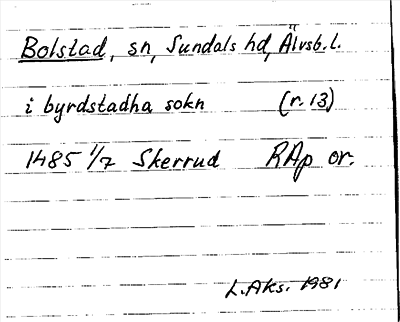 Bolstad, sn, Sundals hd, Älvsb.l.
i byrdstadha sokn (r. 13)
1485 1/7 Skerrud RAp or.
L. Aks. 1981